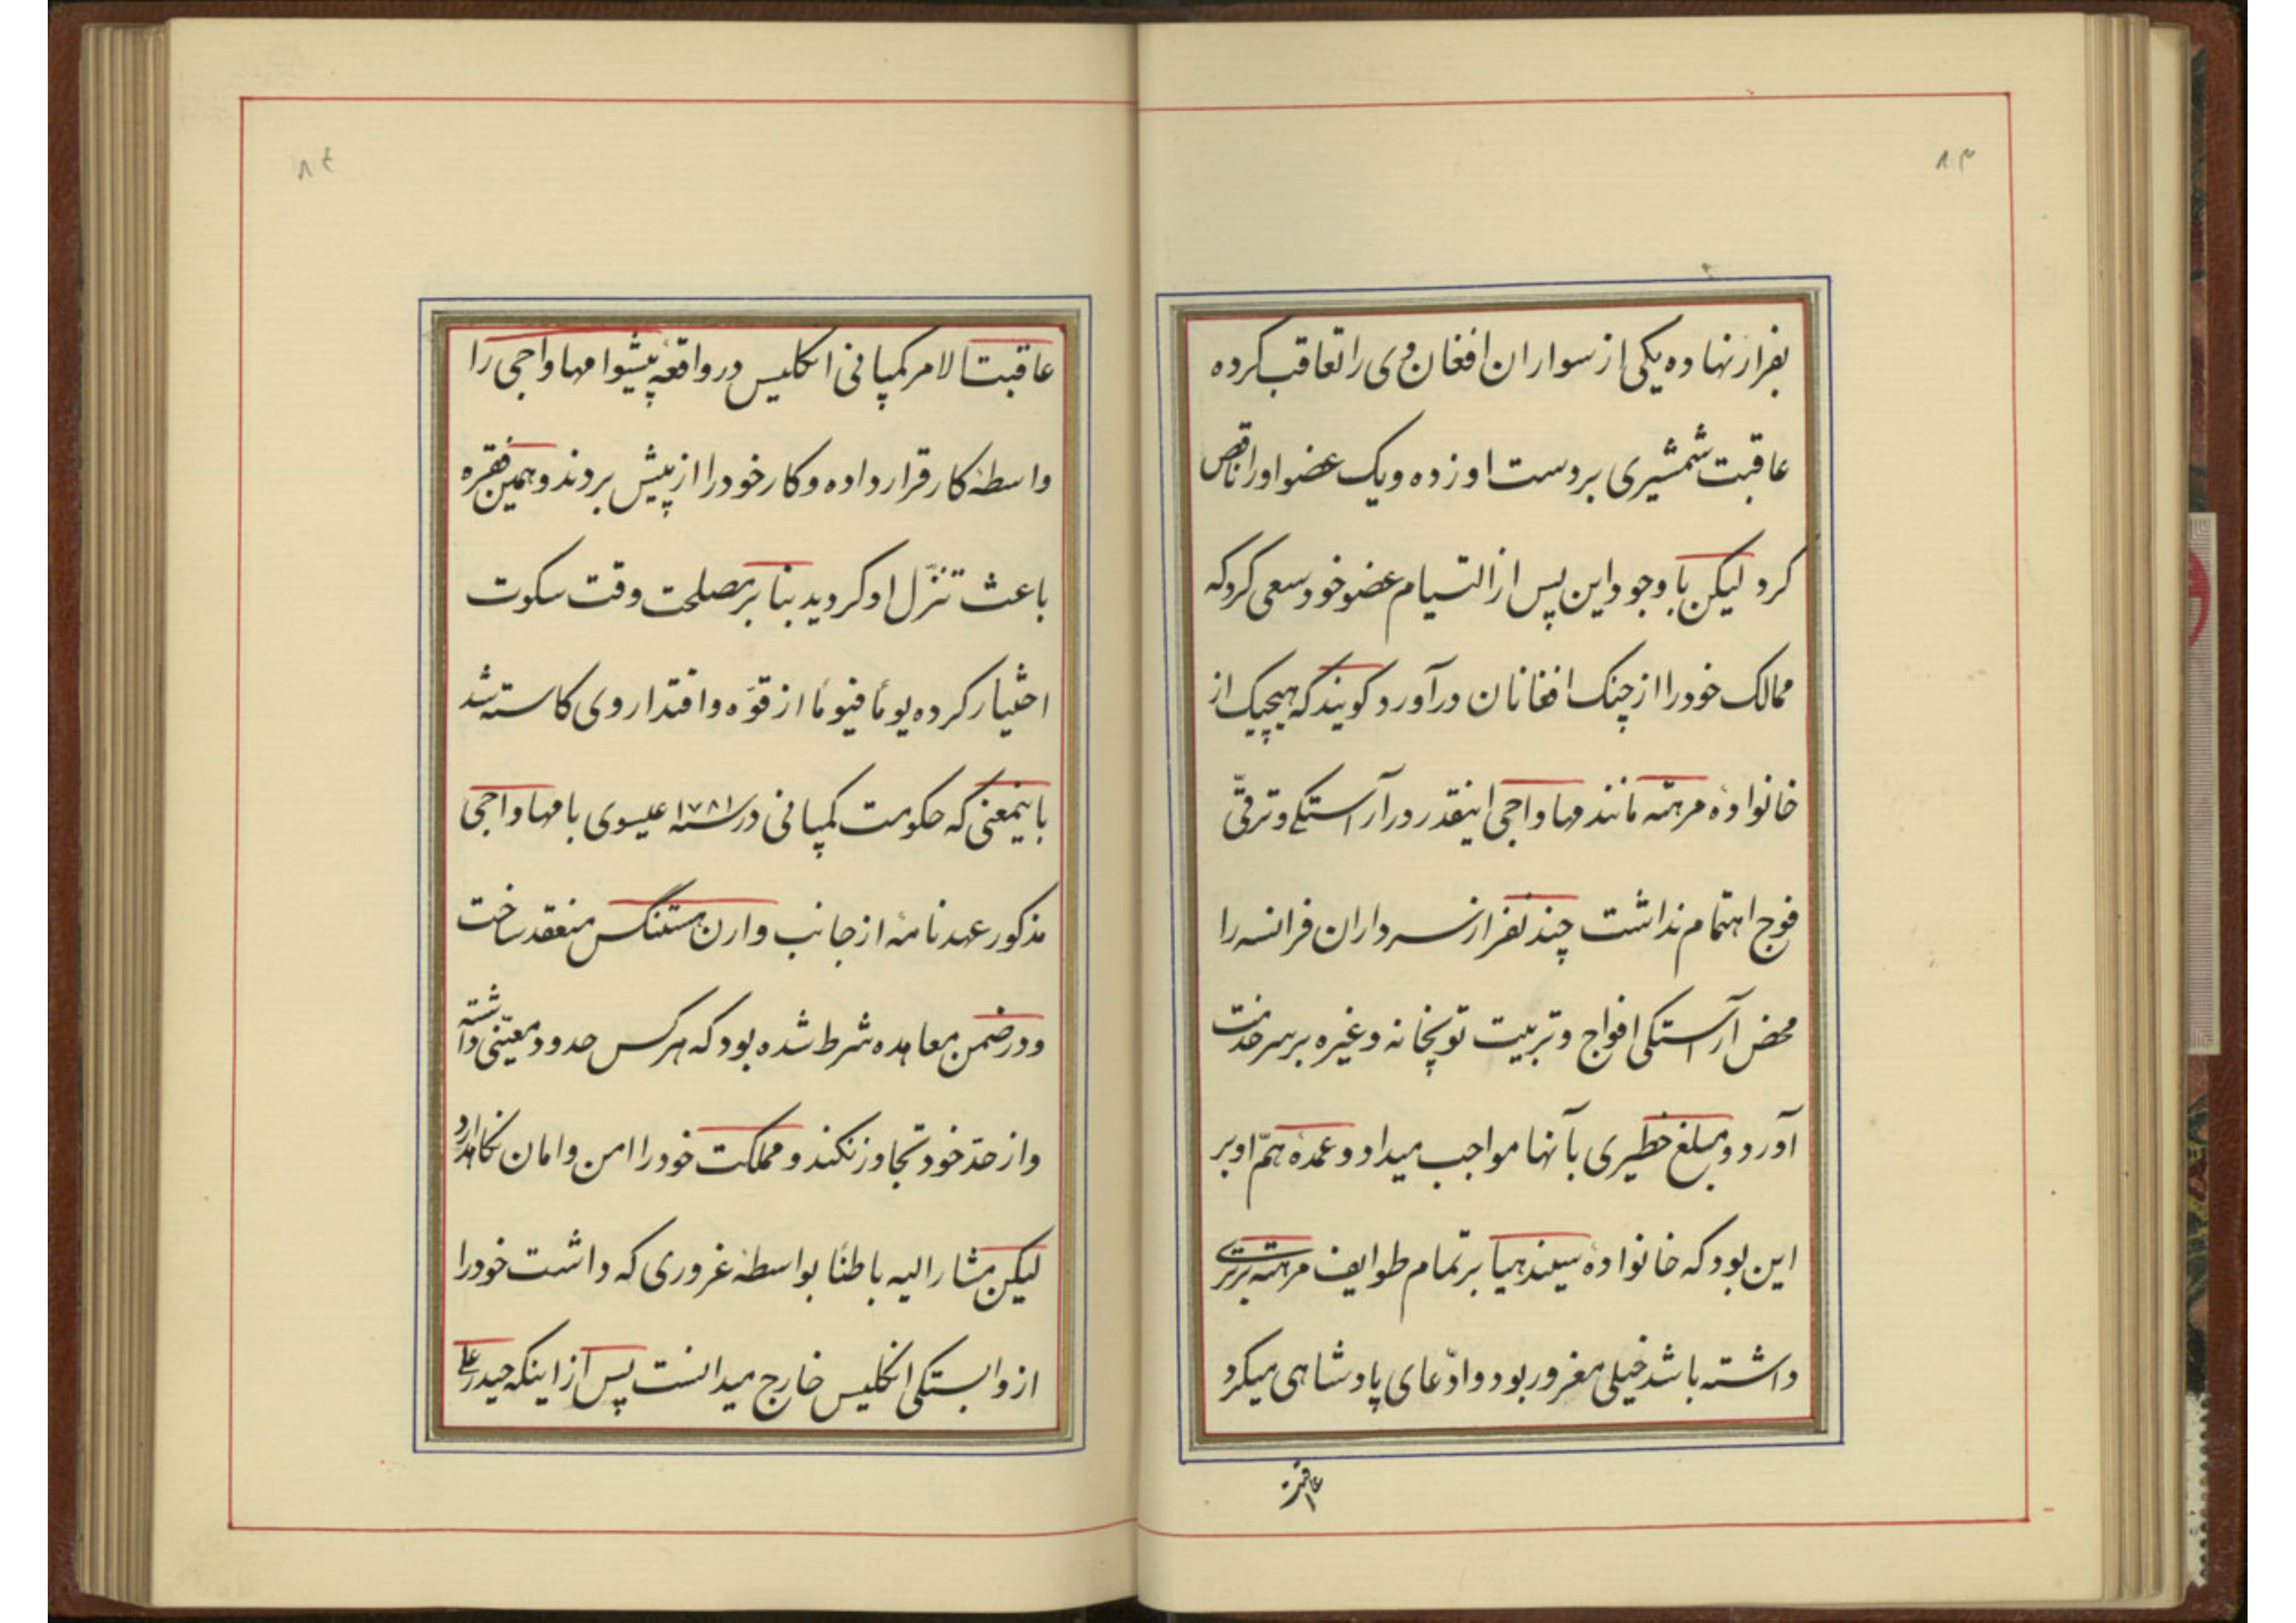 ۸۳
بفرار نهاده یکی از سواران افغان وی را تعاقب کرده
عاقبت شمشیری بر دست او زده و یک عضو او را ناقص
کرد لیکن با وجود این پس از التیام عضو خود سعی کرد که
ممالک خود را از چنک افغانان درآورد کویند که هیچیک از
خانوادهٔ مرهته مانند مهاواجی اینقدر در آراستکی و ترقّی
فوج اهتمام نداشت چند نفر از سرداران فرانسه را
محض آراستکی افواج و تربیت توپخانه و غیره بر سر خدمت
آورد و مبلغ خطیری بآنها مواجب میداد و عمدهٔ همّ او بر
این بود که خانوادهٔ سیندهیا بر تمام طوایف مرهته برتری
داشته باشد خیلی مغرور بود و ادّعای پادشاهی میکرد
عاقبت
۸٤
عاقبت الامر کمپانی انکلیس در واقعهٔ پیشوا مهاواجی را
واسطهٔ کار قرار داده و کار خود را از پیش بردند و همین فقره
باعث تنزّل او کردید بنا بر مصلحت وقت سکوت
اختیار کرده یوماً فیوماً از قوّه و اقتدار وی کاسته شد
باینمعنی که حکومت کمپانی در سنه ۱۷۸۱ عیسوی با مهاواجی
مذکور عهدنامهٔ از جانب وارن هستنکس منعقد ساخت
و در ضمن معاهده شرط شده بود که هر کس حدود معیّنی داشته
و از حدّ خود تجاوز نکند و مملکت خود را امن و امان نکاهدارد
لیکن مشار الیه باطناً بواسطهٔ غروری که داشت خود را
از وابستکی انکلیس خارج میدانست پس از اینکه حیدر علی